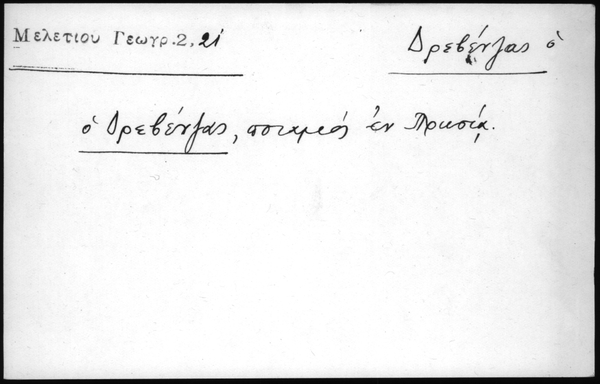 Μελετίου Γεωγρ.2, 21
Δρεβένζας ὁ
ὁ Δρεβένζας, ποταμός ἐν Πρωσίᾳ.